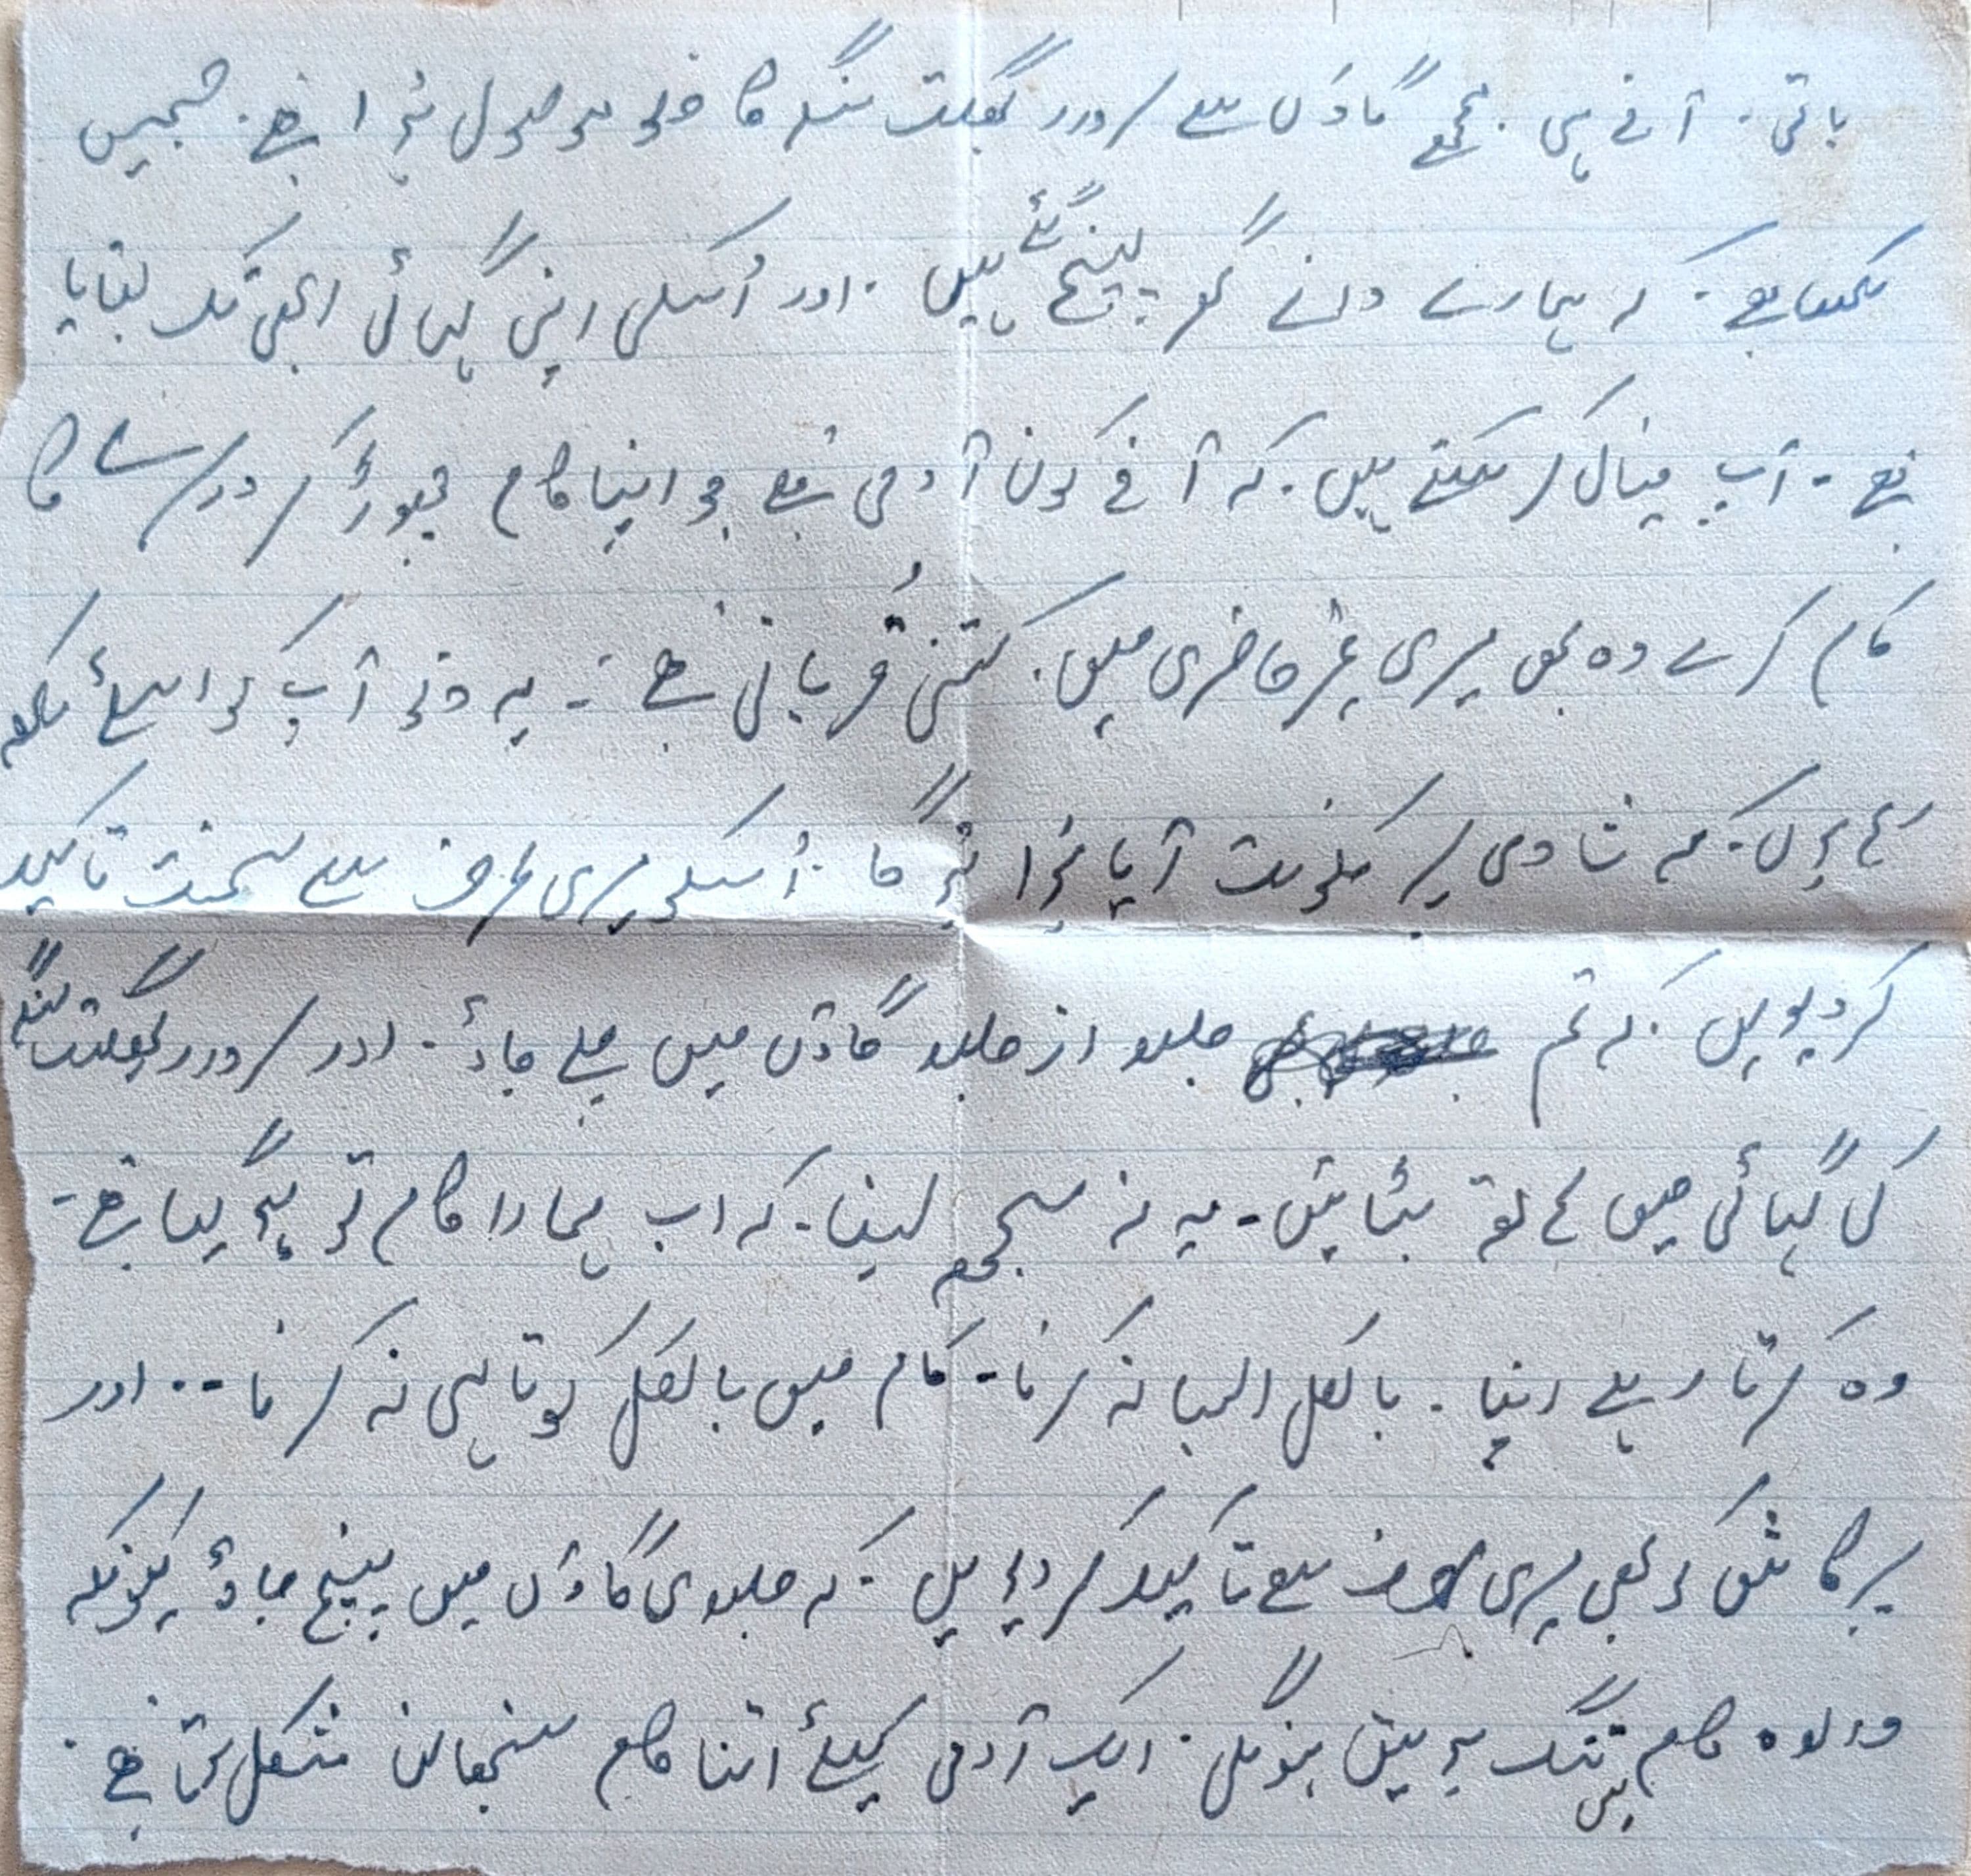 باقی. آتے ہی. مجھے گاؤں سے سردار بھگت سنگھ کا خط موصول ہوا ہے. جسمیں
لکھا ہے. کہ ہمارے دانے گھر پہنچ گئے ہیں. اور اُسکی اپنی گہائی ابھی تک بقایا
ہے - آپ خیال کر سکتے ہیں. کہ آنے کون آدمی ہے جو اپنا کام چھوڑ کر دوسرے کا
کام کرے وہ بھی میری غیر حاضری میں. کتنی قربانی ہے - یہ خط آپ کو اسلئے لکھ
رہے ہوں. کہ شادی پر آیا ہوا ہوگا. اُسکو میری طرف سے سخت تاکید
کر دیویں. کہ تم جلد از جلد گاؤں میں چلے جاؤ. اور سردار بھگت سنگھ
کی گہائی میں ہاتھ بٹائیں - یہ نہ سمجھ لینا. کہ اب ہمارا کام تو ہو گیا ہے -
وہ کرتا رہے اپنا. بالکل ایسا نہ کرنا - کام میں بالکل کوتاہی نہ کرنا - . اور
کو بھی میری طرف سے تاکید کر دیویں. کہ جلدی گاؤں میں پہنچ جاؤ کیونکہ
وہ کام میں تنگ ہوگی. ایک آدمی کیلئے اتنا کام سنبھالنا مشکل ہوتا ہے.